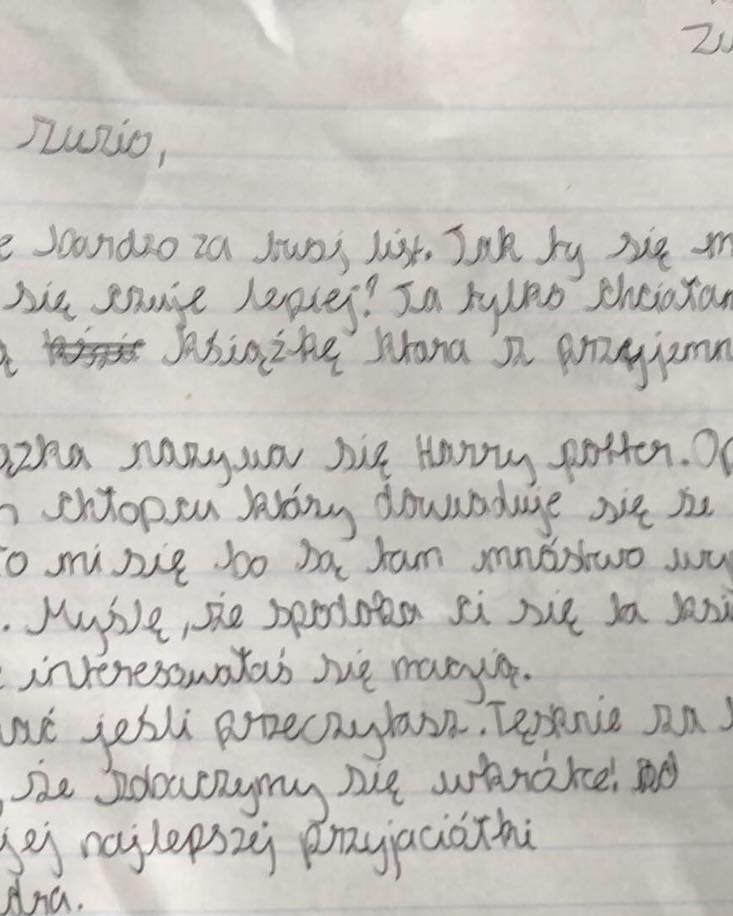 zuzio,
bardzo za twój list. Jak ty się m
się czuje lepiej? Ja tylko chciałam
książkę ktora z przyjemn
ązka nazywa się Harry potter. Op
chłopcu który dowaduje się że
o mi się bo są tam mnóstwo wy
. Myślę, że spodoba ci się ta ksi
interesowałaś się magią.
ać jeśli przeczytasz. Tęsknie za
, że zobaczymy się wkrótce!
jej najlepszej przyjaciółki
dra.